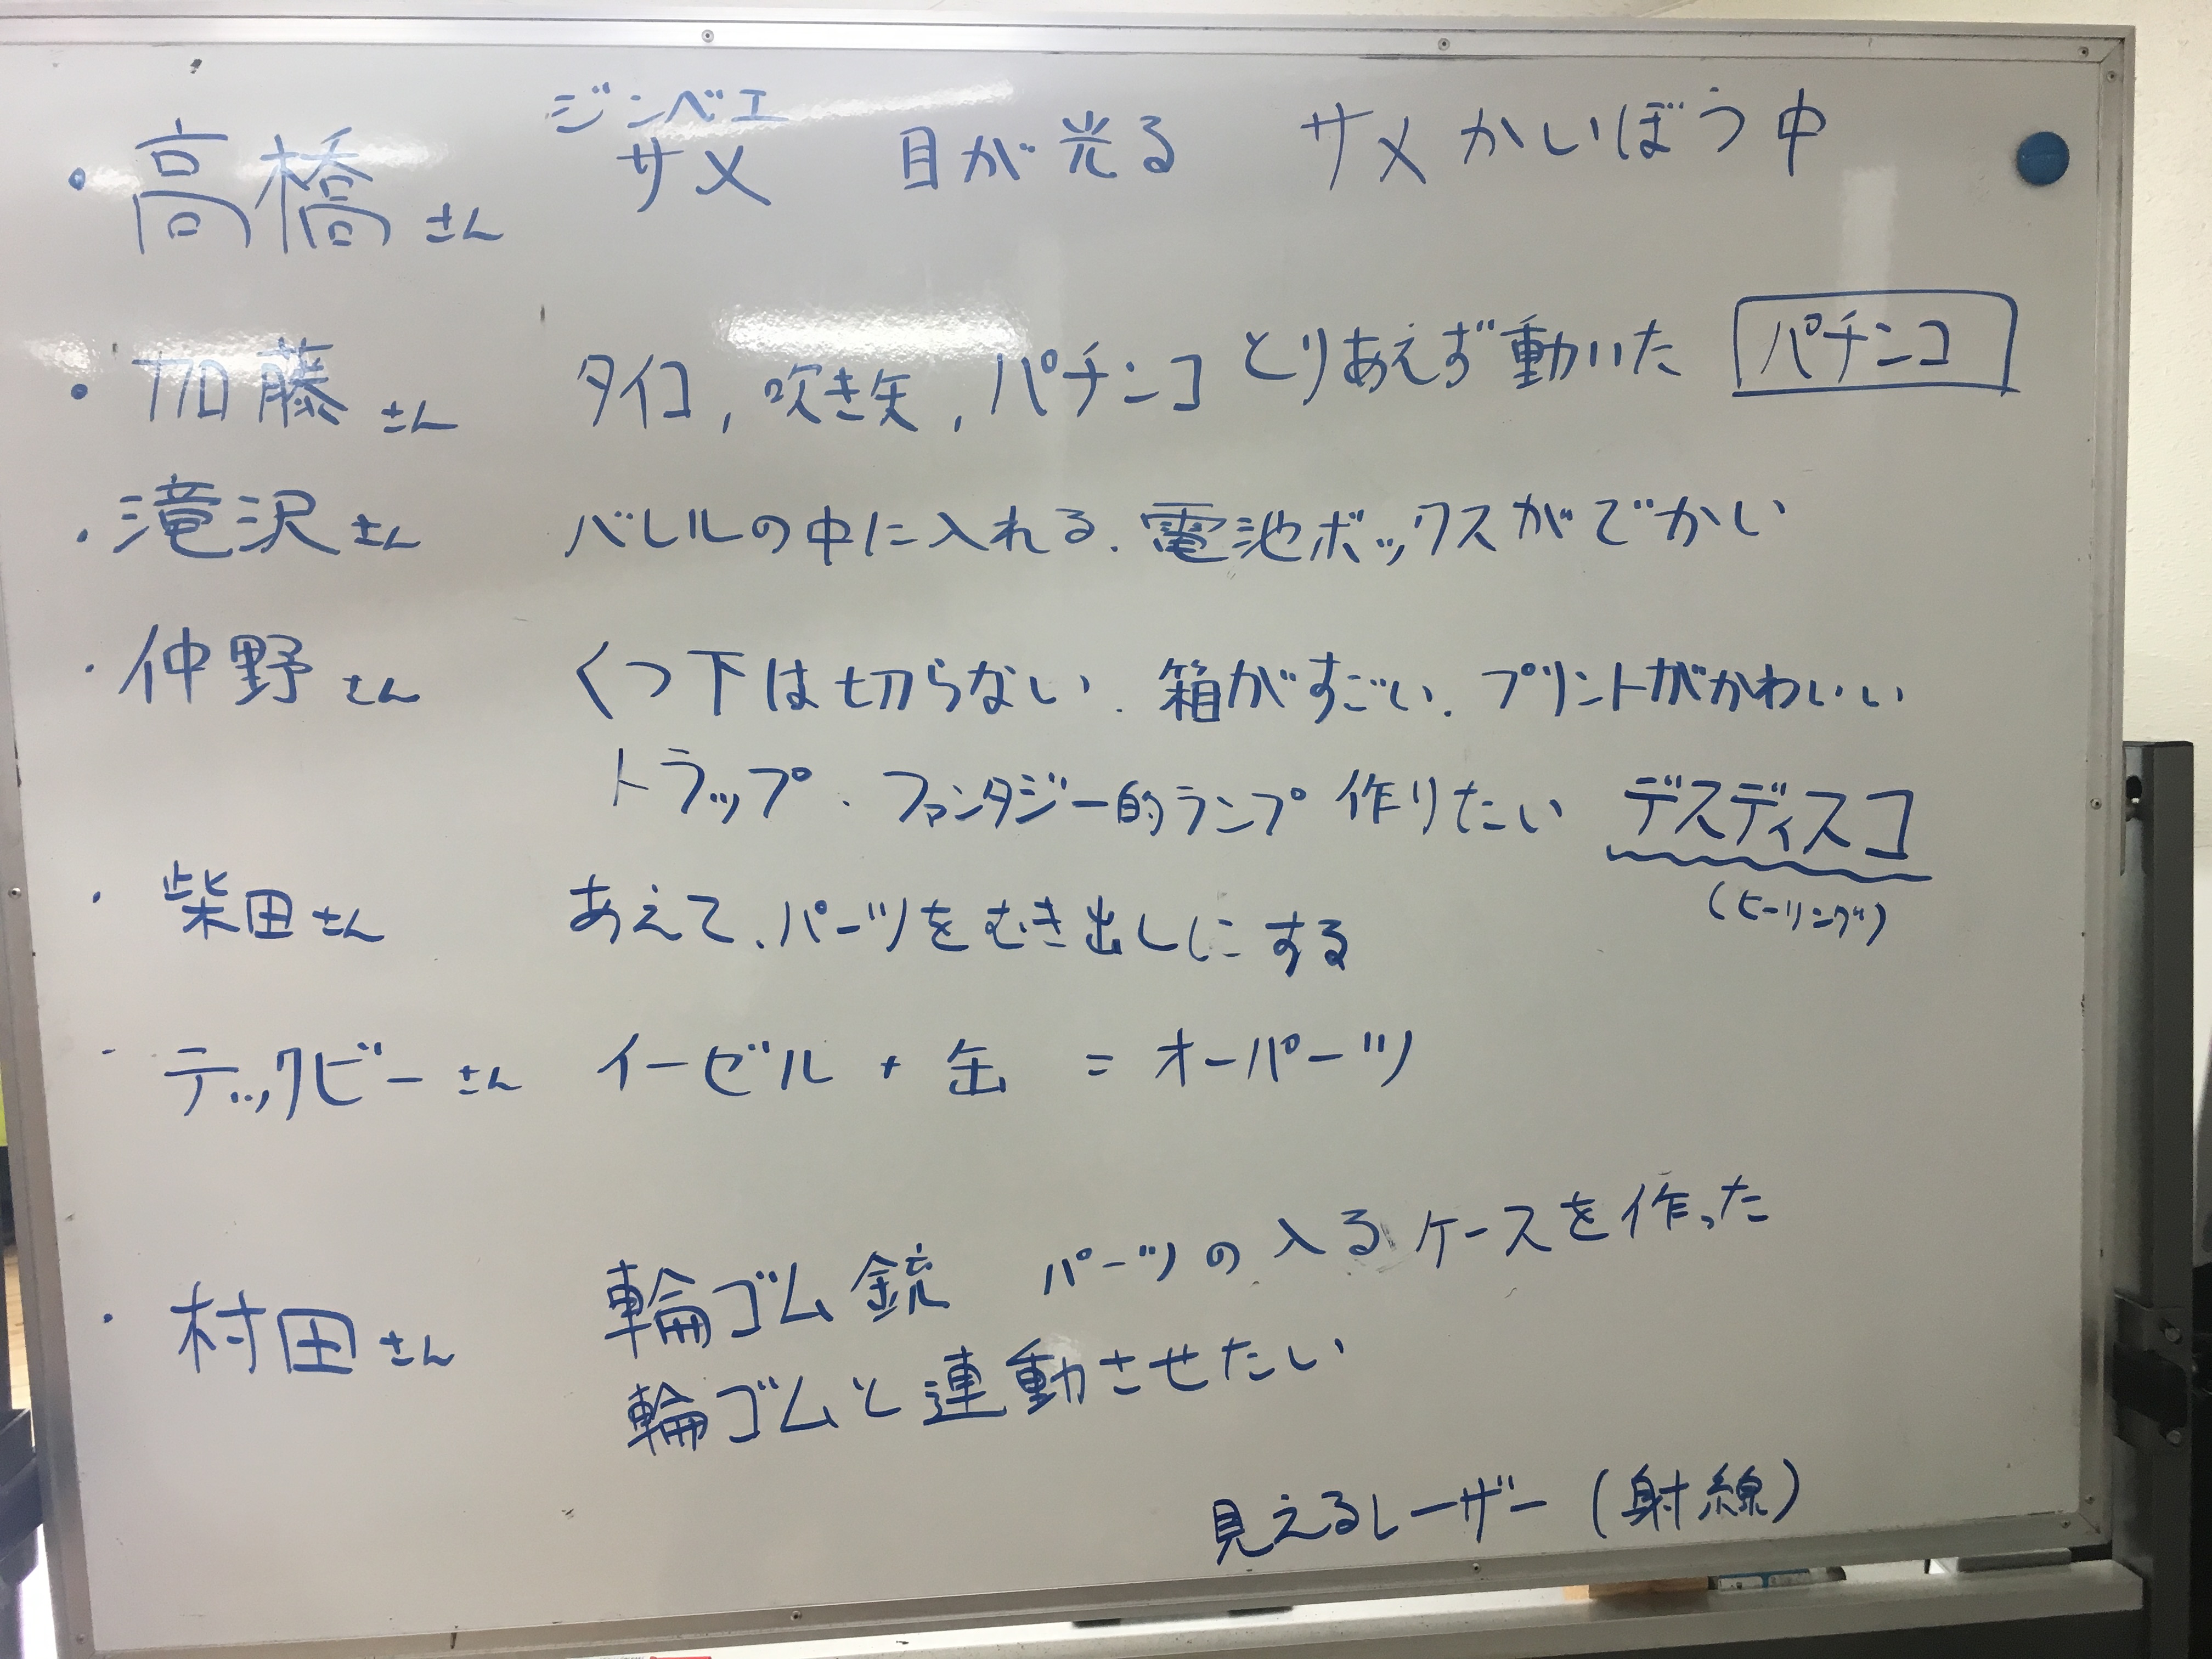 ・高橋さん ジンベエサメ 目が光る サメかいぼう中
・加藤さん タイコ, 吹き矢, パチンコ とりあえず動いた パチンコ
・滝沢さん バレルの中に入れる. 電池ボックスがでかい
・仲野さん くつ下は切らない. 箱がすごい. プリントがかわいい
トラップ. ファンタジー的ランプ 作りたい デスディスコ
(ヒーリング)
・柴田さん あえて、パーツをむき出しにする
・テックビーさん イーゼル + 缶 = オーパーツ
・村田さん 輪ゴム銃 パーツの入るケースを作った
輪ゴムと連動させたい
見えるレーザー (射線)